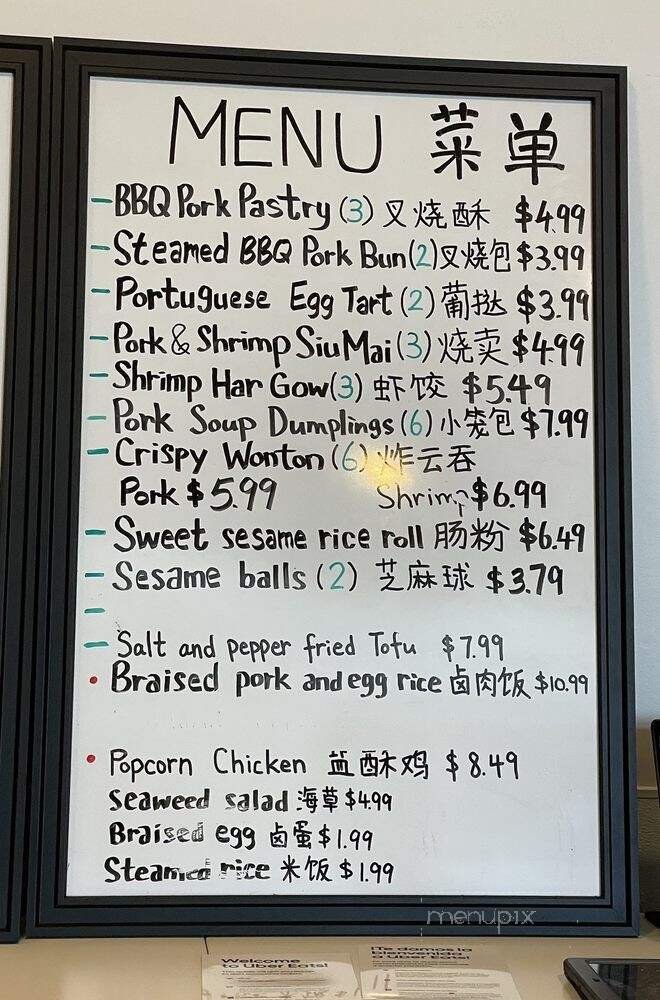 MENU 菜单
BBQ Pork Pastry (3) 叉烧酥 $4.99
Steamed BBQ Pork Bun (2) 叉烧包 $3.99
Portuguese Egg Tart (2) 葡挞 $3.99
Pork & Shrimp Siu Mai (3) 烧卖 $4.99
Shrimp Har Gow (3) 虾饺 $5.49
Pork Soup Dumplings (6) 小笼包 $7.99
Crispy Wonton (6) 炸云吞
Pork $5.99 Shrimp $6.99
Sweet sesame rice roll 肠粉 $6.49
Sesame balls (2) 芝麻球 $3.79
Salt and pepper fried Tofu $7.99
Braised pork and egg rice 卤肉饭 $10.99
Popcorn Chicken 盐酥鸡 $8.49
Seaweed salad 海草 $4.99
Braised egg 卤蛋 $1.99
Steamed rice 米饭 $1.99
menupix
Welcome to Uber Eats!
¡Te damos la bienvenida a Uber Eats!